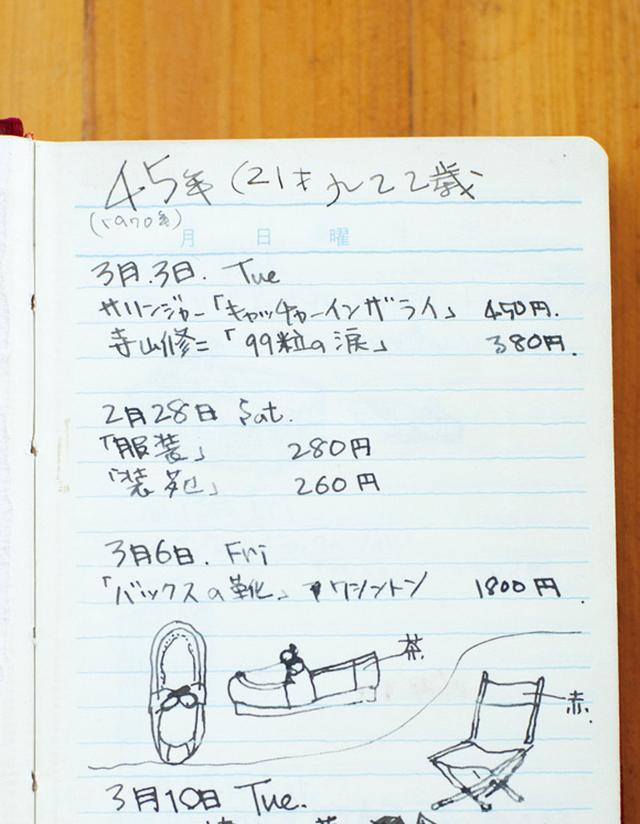 45年 (21才〜22歳
(1970年)
月 日 曜
3月.3日. Tue
サリンジャー「キャッチャーインザライ」 450円.
寺山修二「99粒の涙」 380円.
2月28日 Sat.
「服装」 280円
「装苑」 260円
3月6日. Fri
「バックスの靴」 ワシントン 1800円.
茶
赤.
3月10日 Tue.